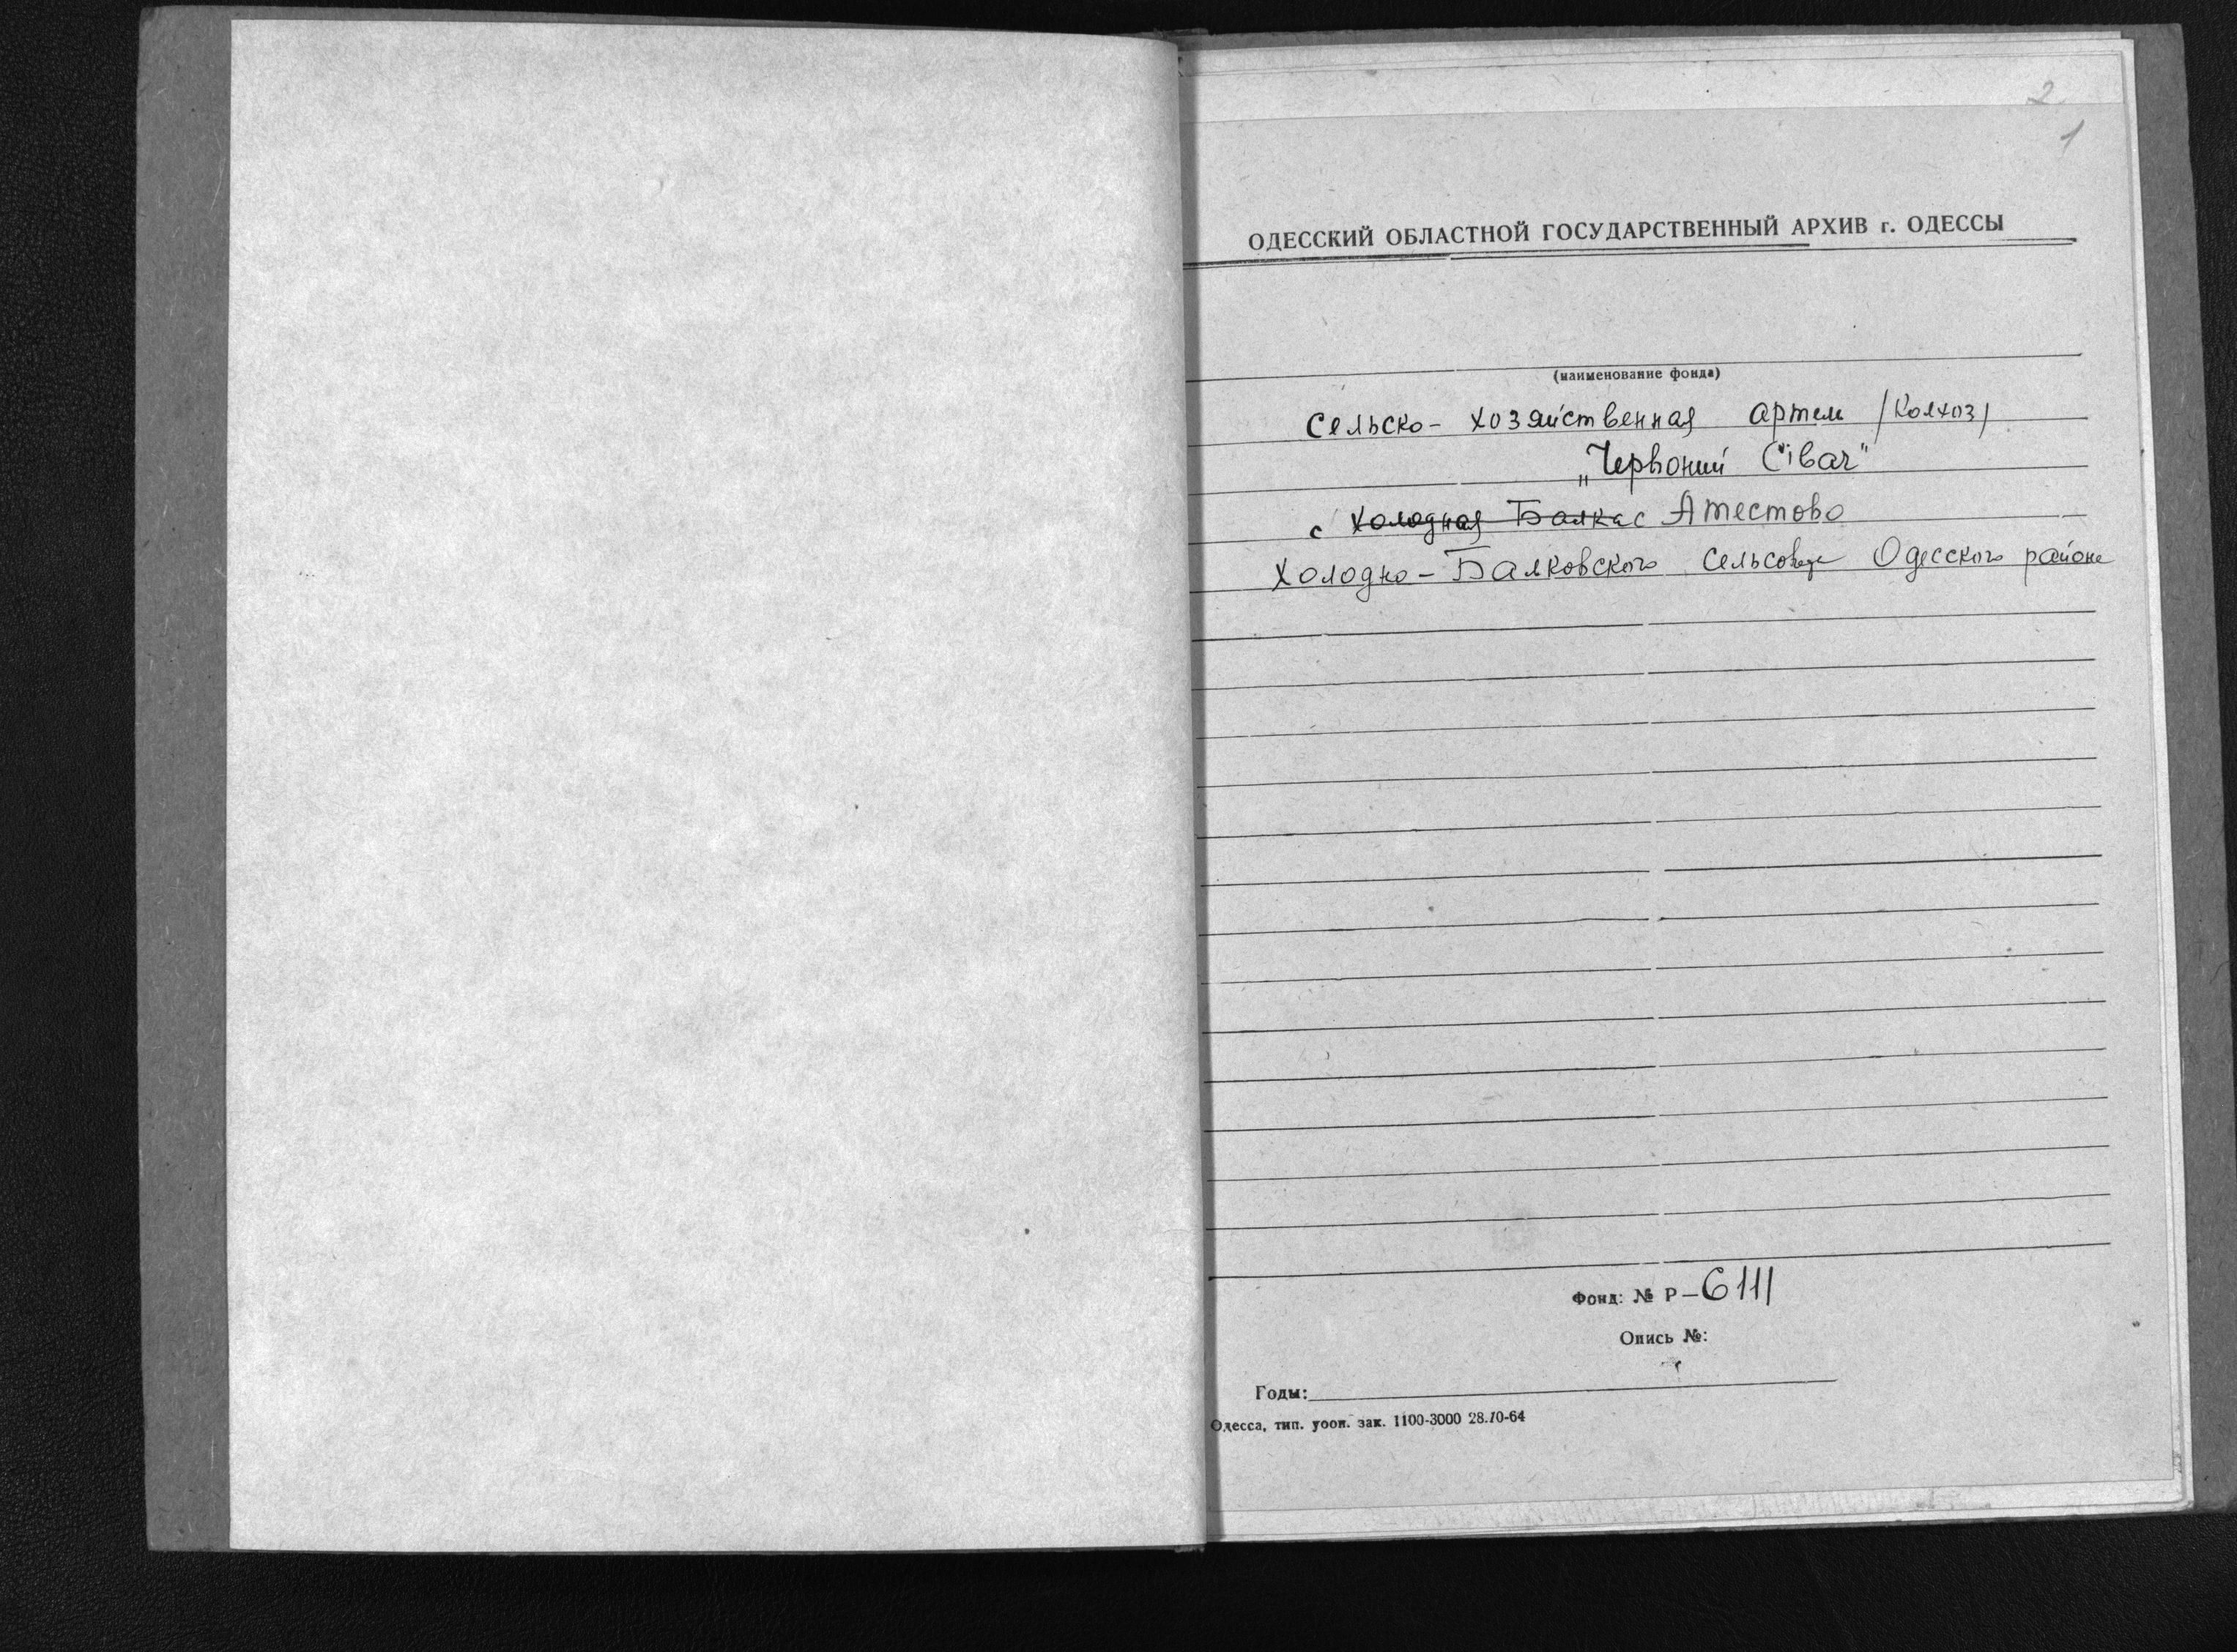 2
1
ОДЕССКИЙ ОБЛАСТНОЙ ГОСУДАРСТВЕННЫЙ АРХИВ г. ОДЕССЫ
(наименование фонда)
Сельско- хозяйственная артель /колхоз/
„Червоний Сівач"
с Холодная Балка с Атестово
Холодно-Балковского сельсовета Одесского района
Фонд: № Р-6111
Опись №:
Годы:
Одесса, тип. уоои. зак. 1100-3000 28.10-64